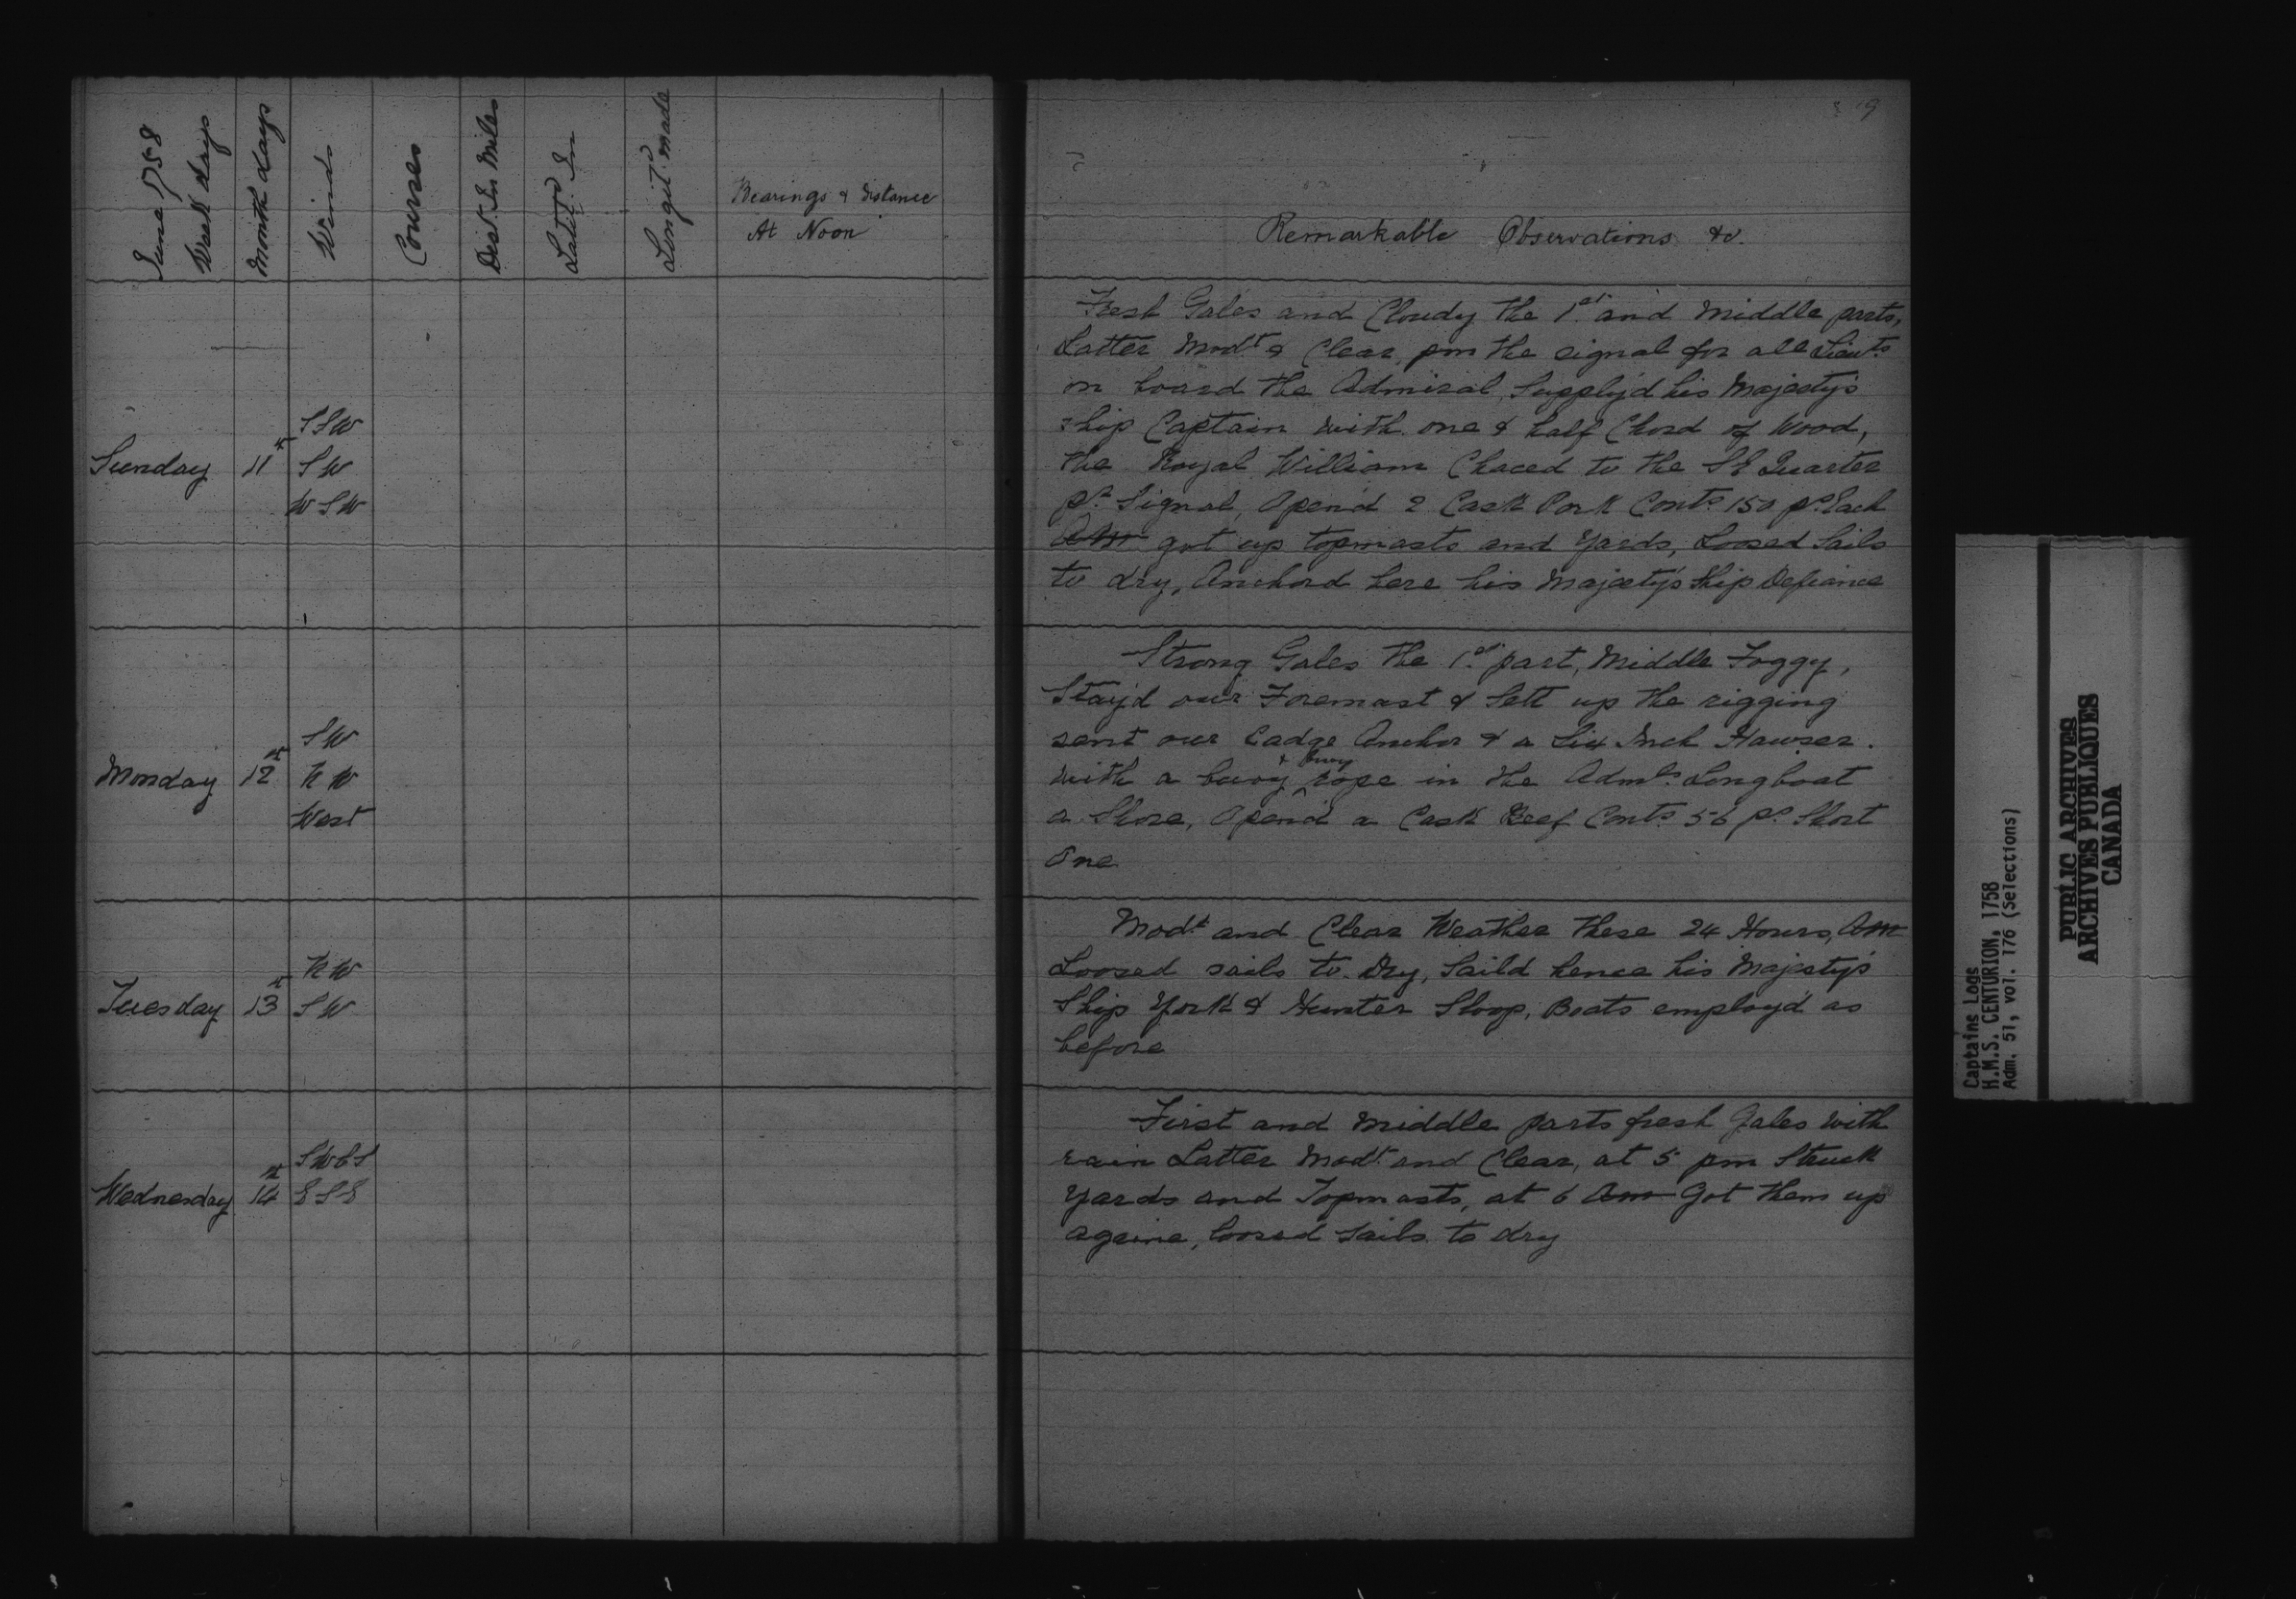 June 1758
Week days
Month days
Winds
Courses
Dist. In Miles
Latitd. In
Longitd. made
Bearings & Distance
At Noon
Sunday 11th
SSW
SW
WSW
Monday 12th
SW
NW
West
Tuesday 13th
NW
SW
Wednesday 14th
SWbS
ESE
19
Remarkable Observations &c.
Fresh Gales and Cloudy the 1st. and Middle parts,
Latter Modt & Clear, pm the signal for all Lieuts.
on board the Admiral, Supply'd his Majesty's
ship Captain with one & half Chord of Wood,
the Royal William Chaced to the SE Quarter
pr. Signal, Open'd 2 Cask Pork Contg. 150 ps. Each
Am got up topmasts and Yards, Loosed Sails
to dry, Anchord here his Majesty's Ship Defiance
Strong Gales the 1st. part, Middle Foggy,
Stay'd our Foremast & Sett up the rigging
sent our Cadge Anchor & a Six Inch Hawser.
with a buoy & buoy rope in the Admls. Longboat
a Shore, Open'd a Cask Beef Contg. 56 ps. Short
One
Modt. and Clear Weather these 24 Hours, Am
Loosed sails to Dry, Saild hence his Majesty's
Ship York & Hunter Sloop, Boats employ'd as
before
First and Middle parts fresh Gales with
rain Latter Modt. and Clear, at 5 pm Struck
Yards and Topmasts, at 6 Am Got them up
againe, loosed sails to dry
Captains Logs
H.M.S. CENTURION, 1758
Adm. 51, vol. 176 (Selections)
PUBLIC ARCHIVES
ARCHIVES PUBLIQUES
CANADA